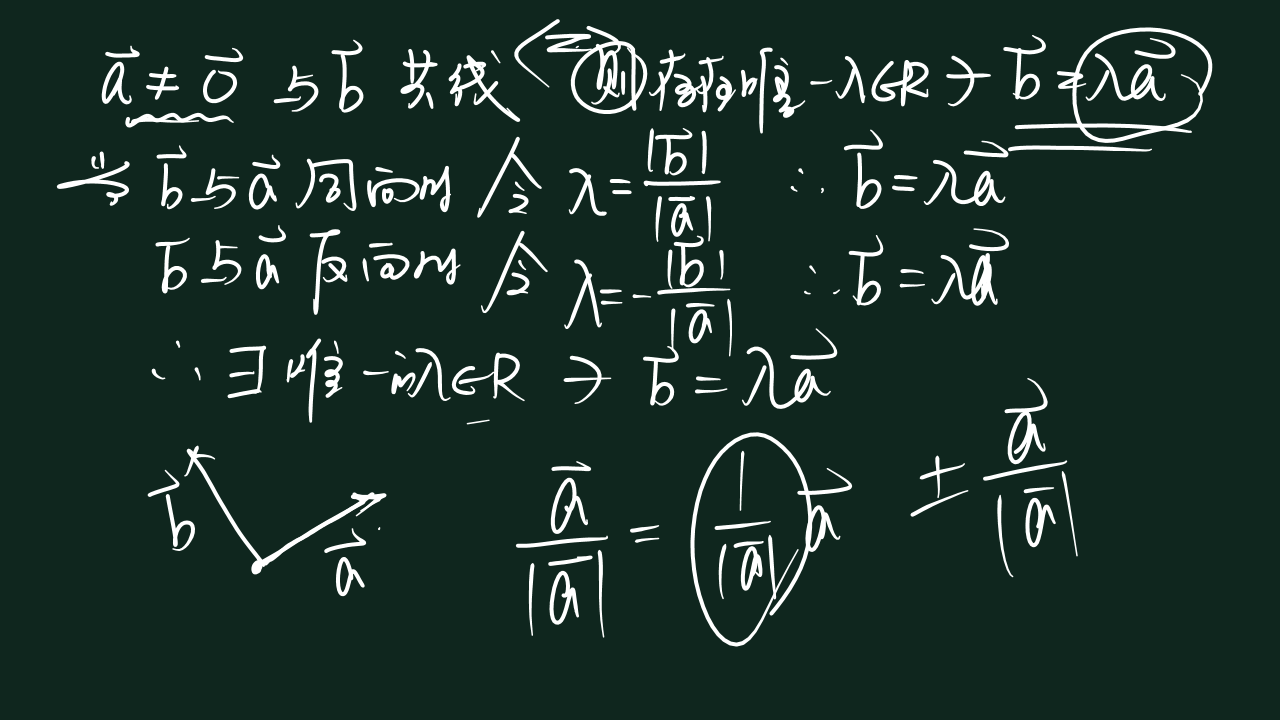 a⃗ ≠ 0⃗ 与 b⃗ 共线 ⟺ 则存在唯一 λ∈R → b⃗ = λa⃗
"⇒" b⃗ 与 a⃗ 同向时 令 λ = |b⃗|/|a⃗| ∴ b⃗ = λa⃗
b⃗ 与 a⃗ 反向时 令 λ = -|b⃗|/|a⃗| ∴ b⃗ = λa⃗
∴ ∃ 唯一的 λ∈R → b⃗ = λa⃗
b⃗ a⃗ a⃗/|a⃗| = 1/|a⃗| a⃗ ± a⃗/|a⃗|